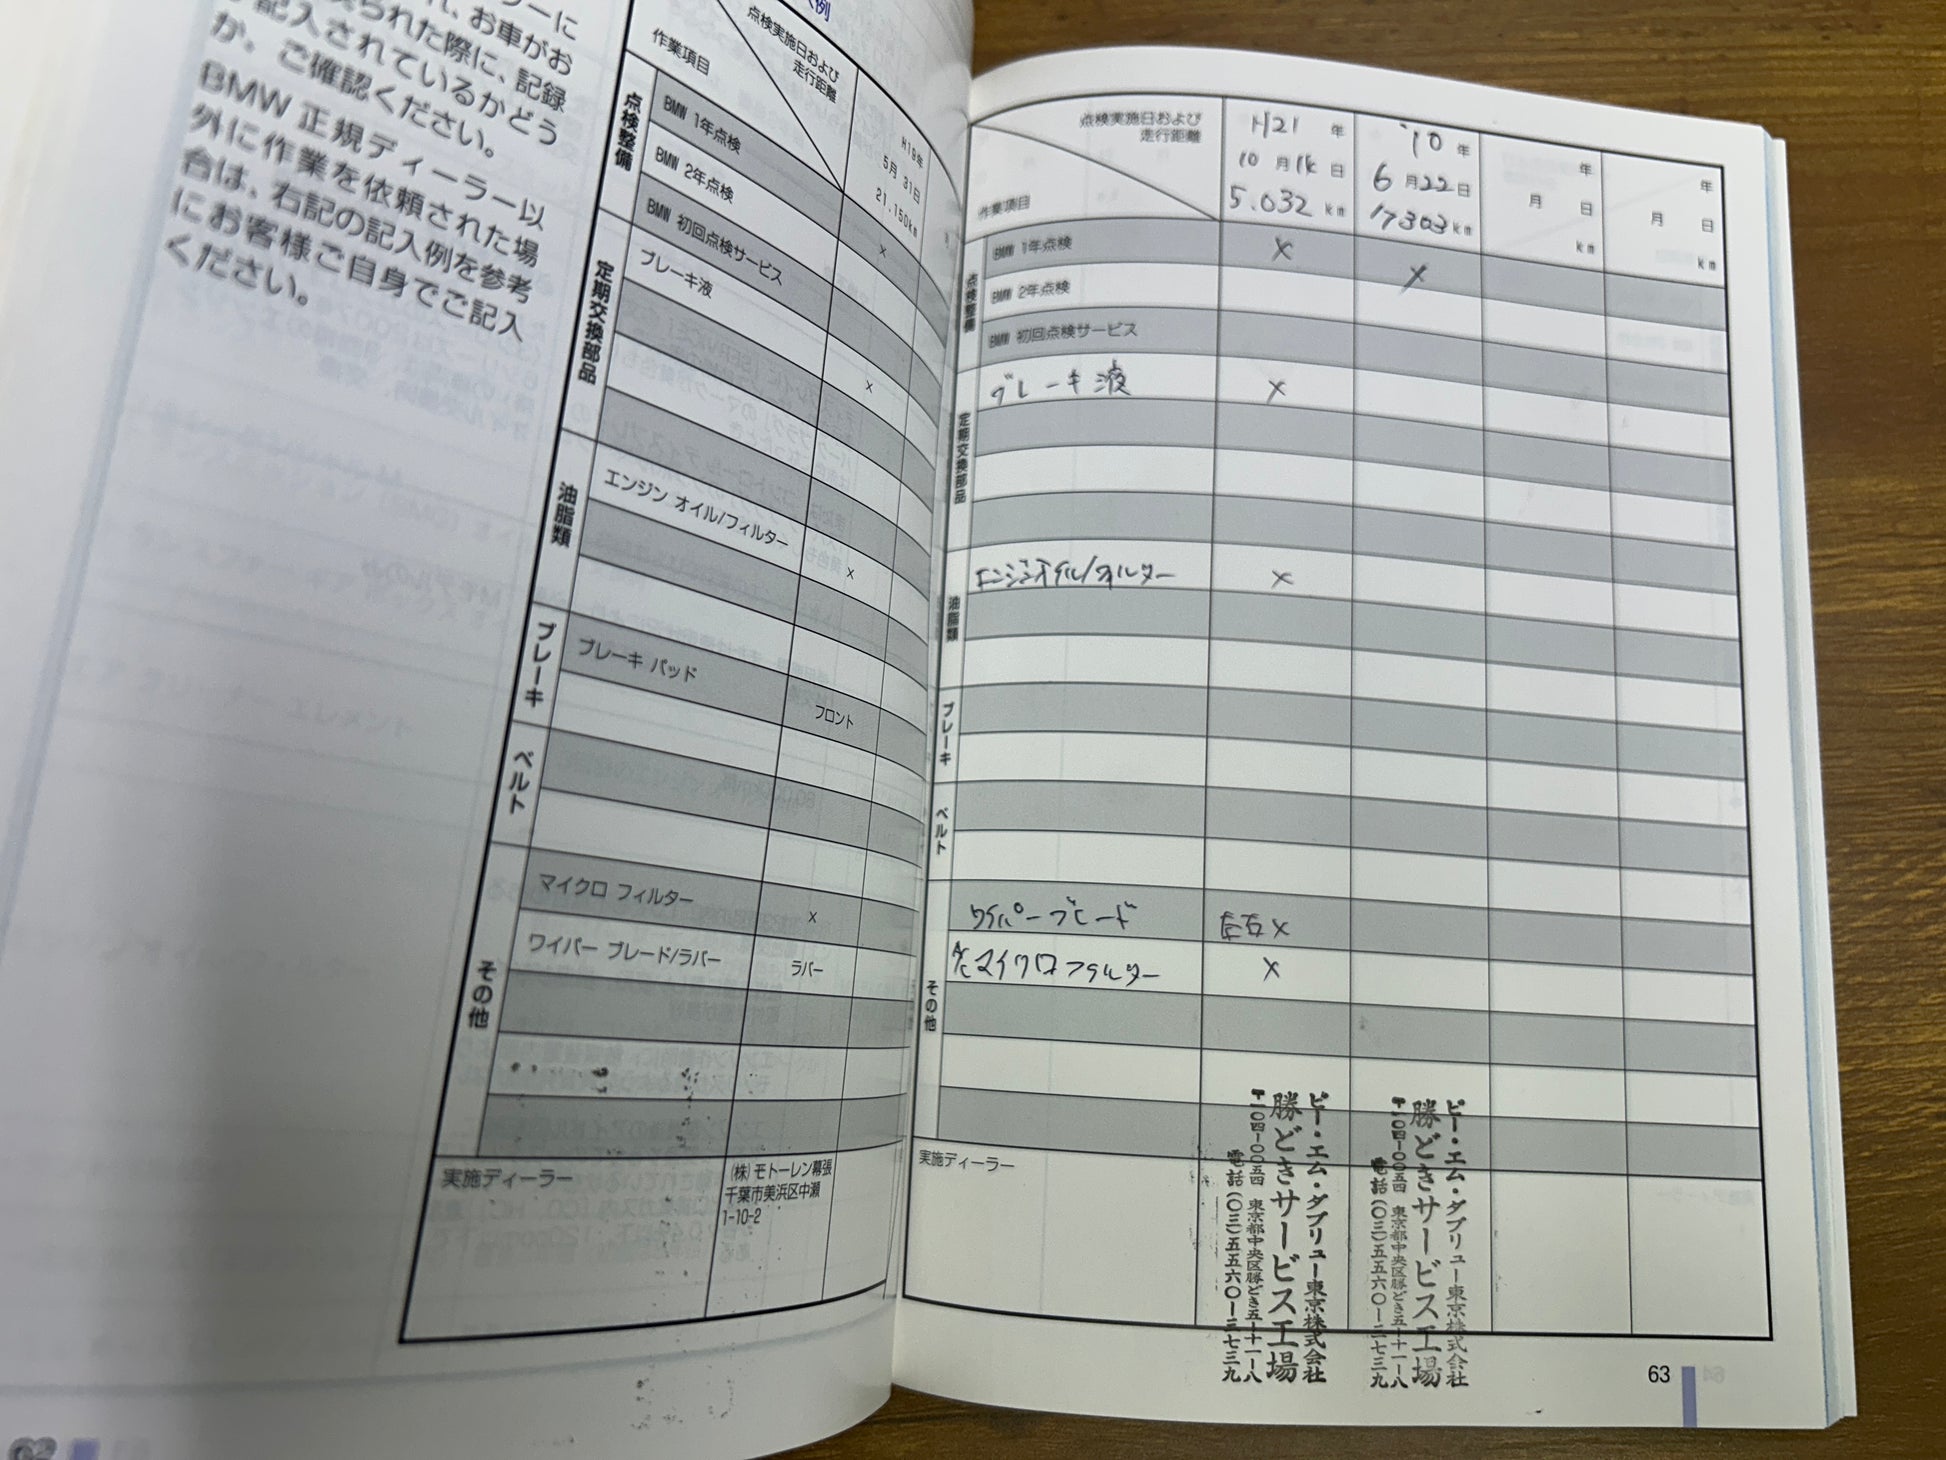 お車がお
られた際に、記録
記入されているかどう
か、ご確認ください。
BMW 正規ディーラー以
外に作業を依頼された場
合は、右記の記入例を参考
にお客様ご自身でご記入
ください。
点検実施日および
走行距離
作業項目
H19年
5月 31日
21,150km
点検整備
BMW 1年点検
×
BMW 2年点検
BMW 初回点検サービス
定期交換部品
ブレーキ液
×
油脂類
エンジン オイル/フィルター
×
ブレーキ
ブレーキ パッド
フロント
ベルト
その他
マイクロ フィルター
×
ワイパー ブレード/ラバー
ラバー
実施ディーラー
(株)モトーレン幕張
千葉市美浜区中瀬
1-10-2
点検実施日および
走行距離
作業項目
H21 年
10 月 14 日
5.032 km
'10 年
6 月 22 日
17303 km
年
月 日
km
年
月 日
km
点検整備
BMW 1年点検
×
×
BMW 2年点検
BMW 初回点検サービス
定期交換部品
ブレーキ液
×
油脂類
エンジンオイル/フィルター
×
ブレーキ
ベルト
その他
ワイパーブレード
左右 ×
A/C マイクロフィルター
×
実施ディーラー
ビー・エム・ダブリュー東京株式会社
勝どきサービス工場
〒一〇四-〇〇五四 東京都中央区勝どき五-十一-八
電話(〇三)五五六〇-二七三九
ビー・エム・ダブリュー東京株式会社
勝どきサービス工場
〒一〇四-〇〇五四 東京都中央区勝どき五-十一-八
電話(〇三)五五六〇-二七三九
63